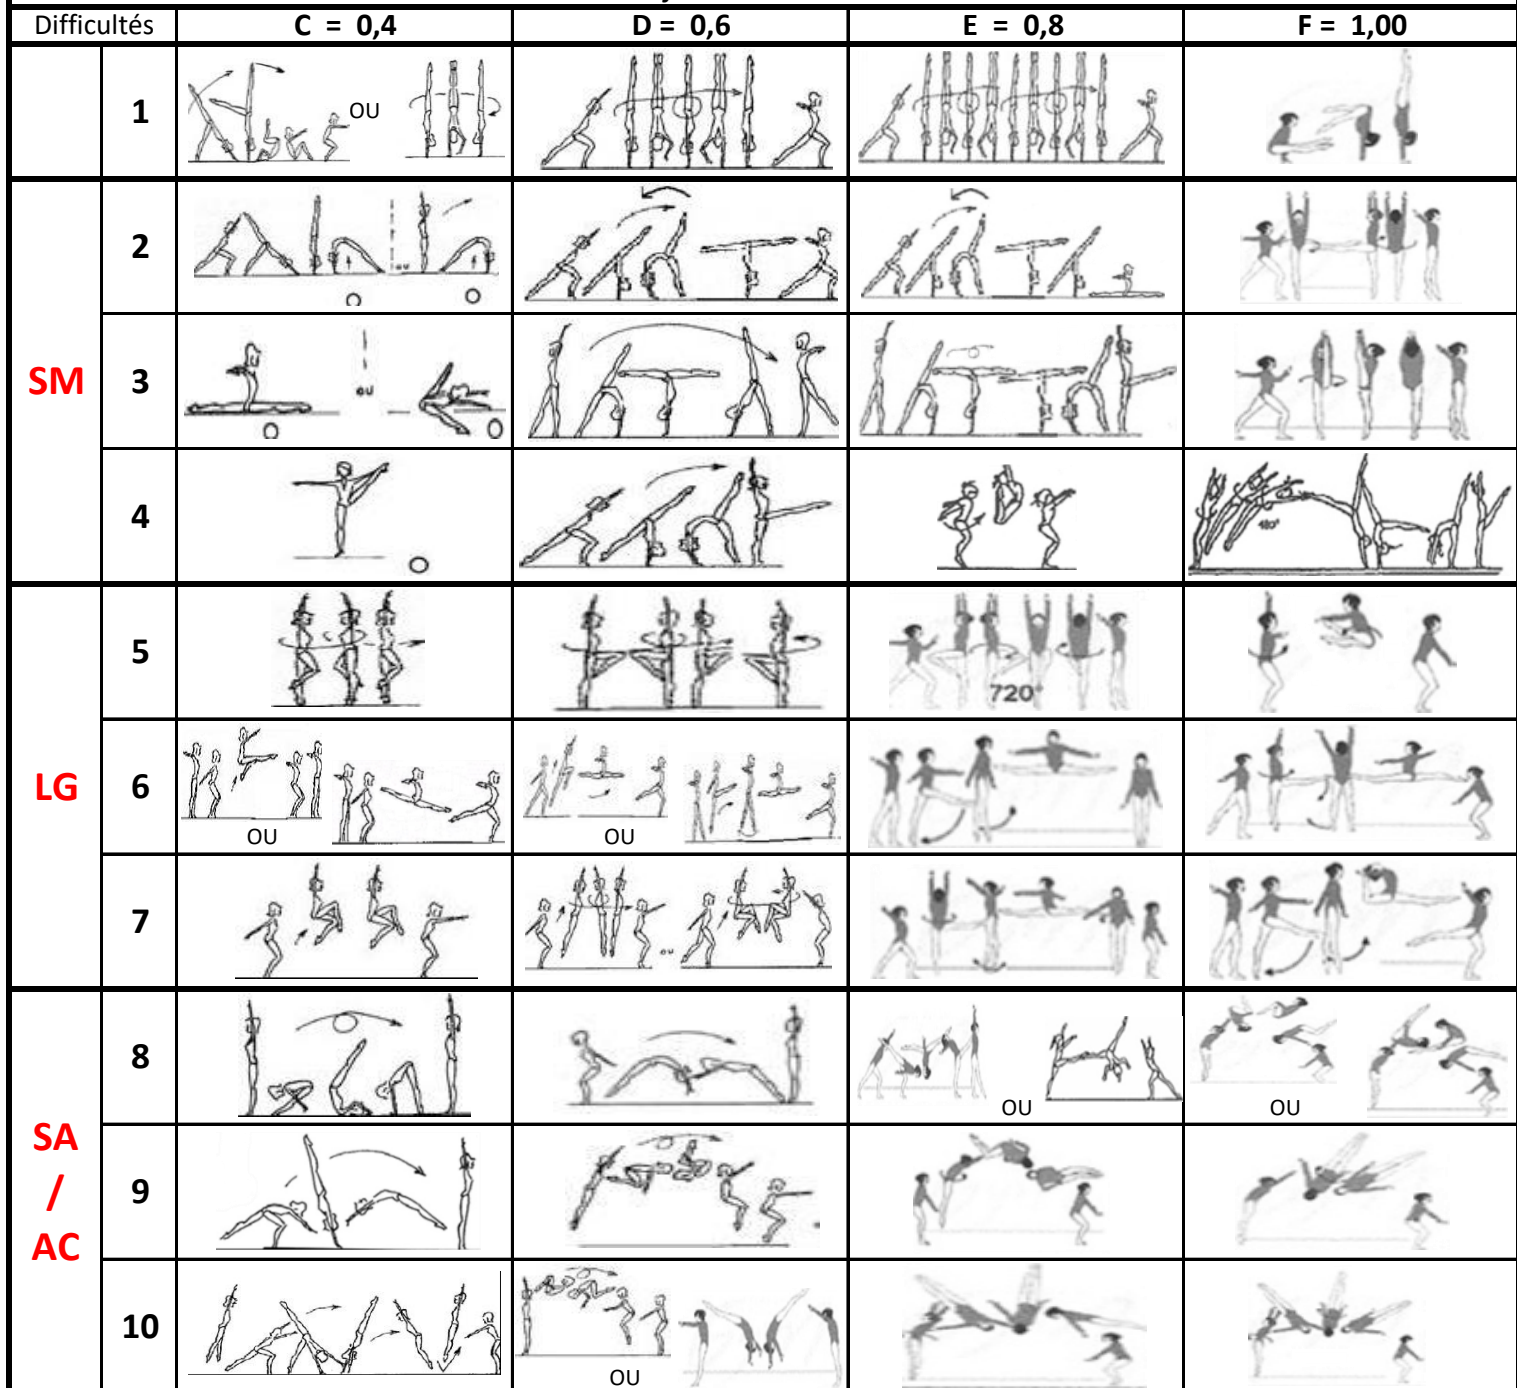 Difficultés C = 0,4 D = 0,6 E = 0,8 F = 1,00
1 OU
SM
2 ou
3 ou
4 180°
LG
5 720°
6 OU OU
7 ou
SA / AC
8 OU OU
9
10 OU